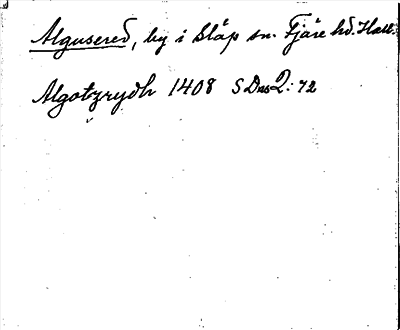 Algusered, by i Släp sn. Fjäre hd. Hall.
Algotzrydh 1408 SDns2: 72